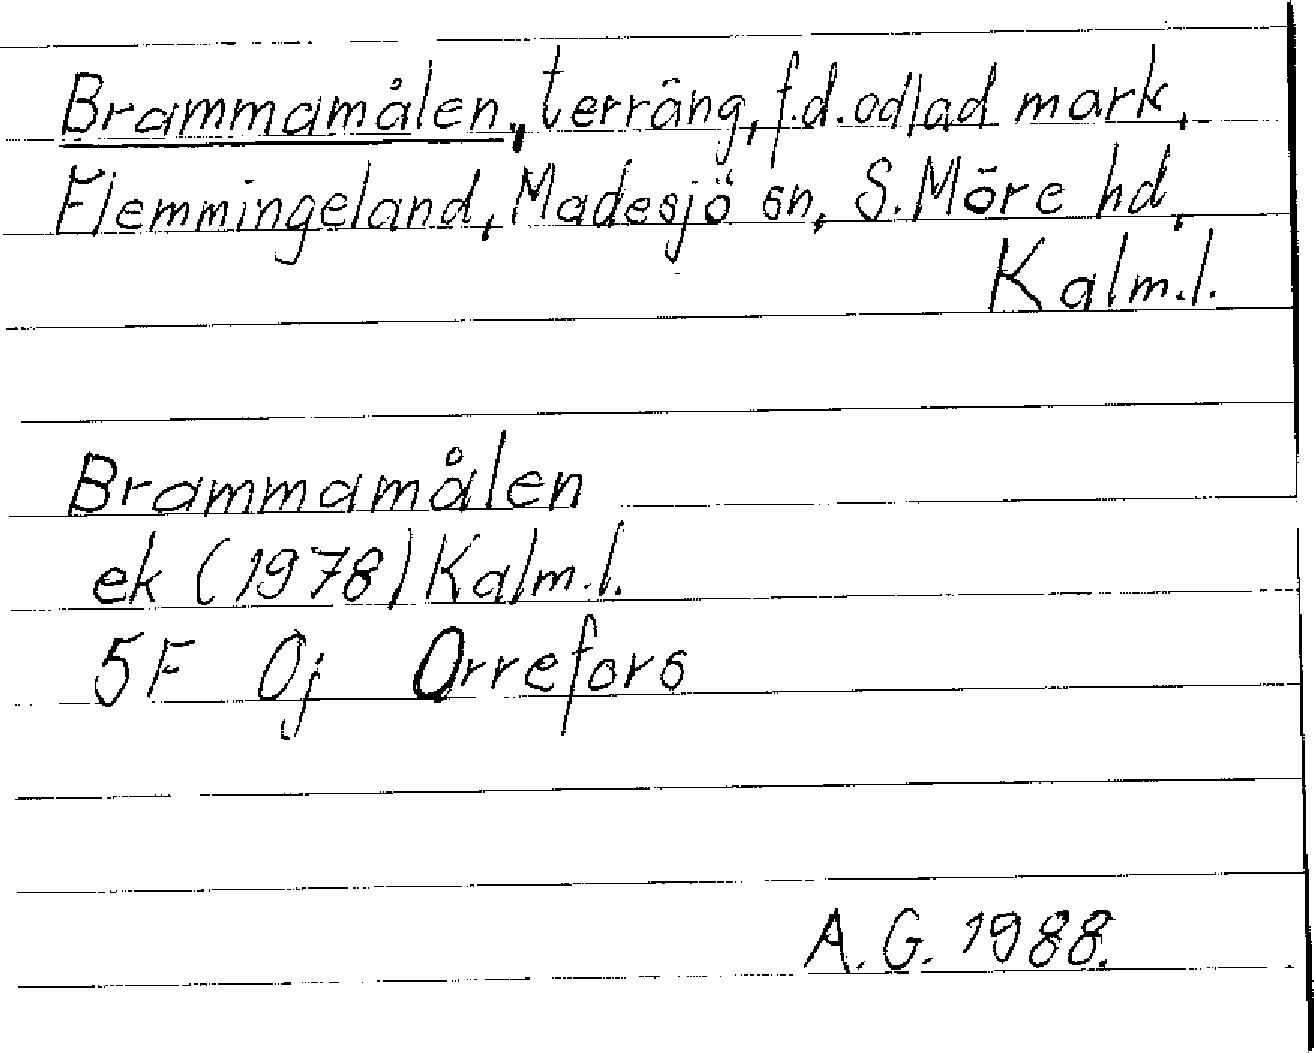 Brammamålen, terräng, f.d. odlad mark,
Flemmingeland, Madesjö sn, S. Möre hd,
Kalm.l.
Brammamålen
ek (1978) Kalm.l.
5F 0j Orrefors
A.G. 1988.